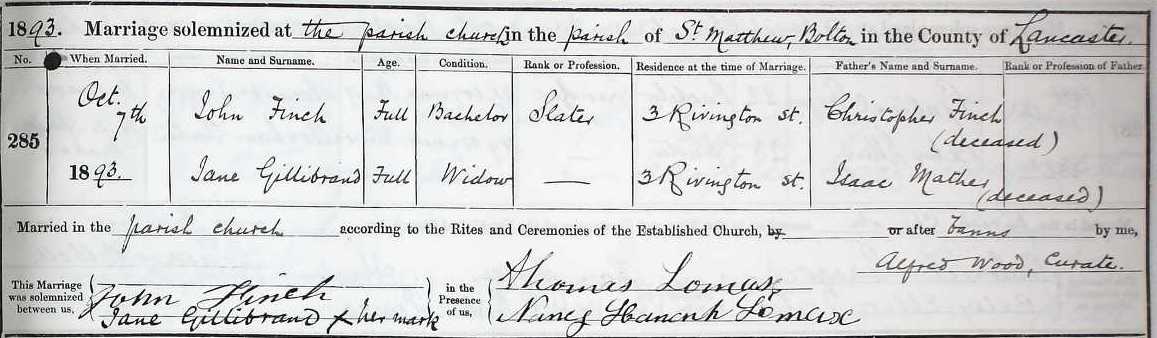 1893. Marriage solemnized at the parish church in the parish of St. Matthew, Bolton in the County of Lancaster.
No. When Married. Name and Surname. Age. Condition. Rank or Profession. Residence at the time of Marriage. Father's Name and Surname. Rank or Profession of Father.
285 Oct. 7th John Finch Full Bachelor Slater 3 Rivington St. Christopher Finch (deceased)
1893. Jane Gillibrand Full Widow — 3 Rivington St. Isaac Mather (deceased)
Married in the parish church according to the Rites and Ceremonies of the Established Church, by or after banns by me,
Alfred Wood, Curate.
This Marriage was solemnized between us,
John Finch
Jane Gillibrand x her mark
in the Presence of us,
Thomas Lomax
Nancy Hannah Lomax